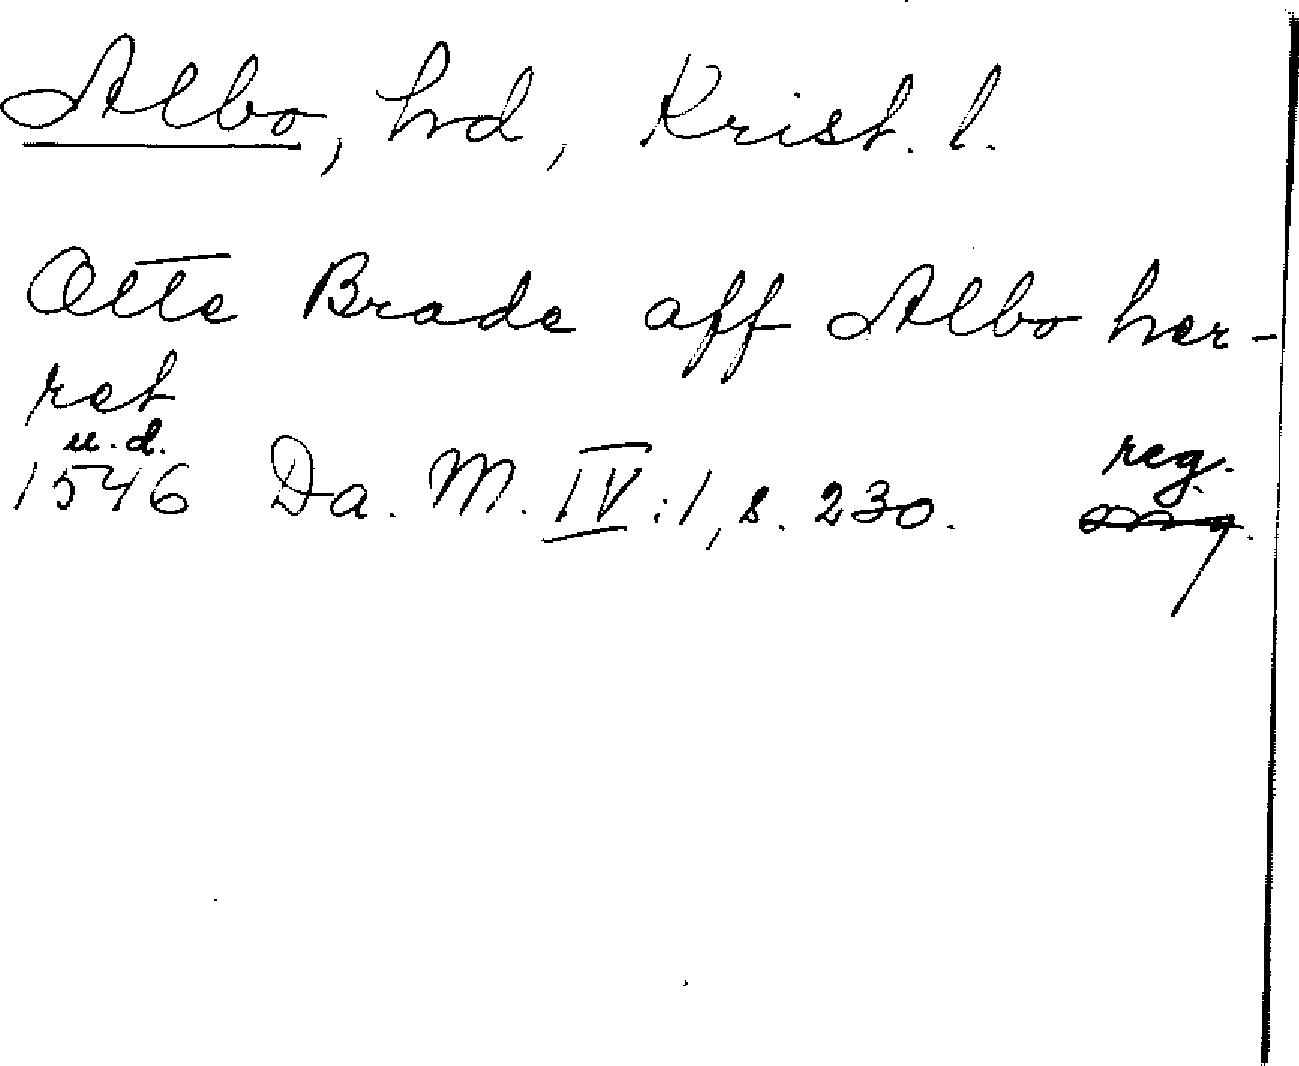 Albo, hd, Krist. l.
Otte Brade aff Albo her-
ret
u.d.
1546 Da. M. IV:1, s. 230. reg.